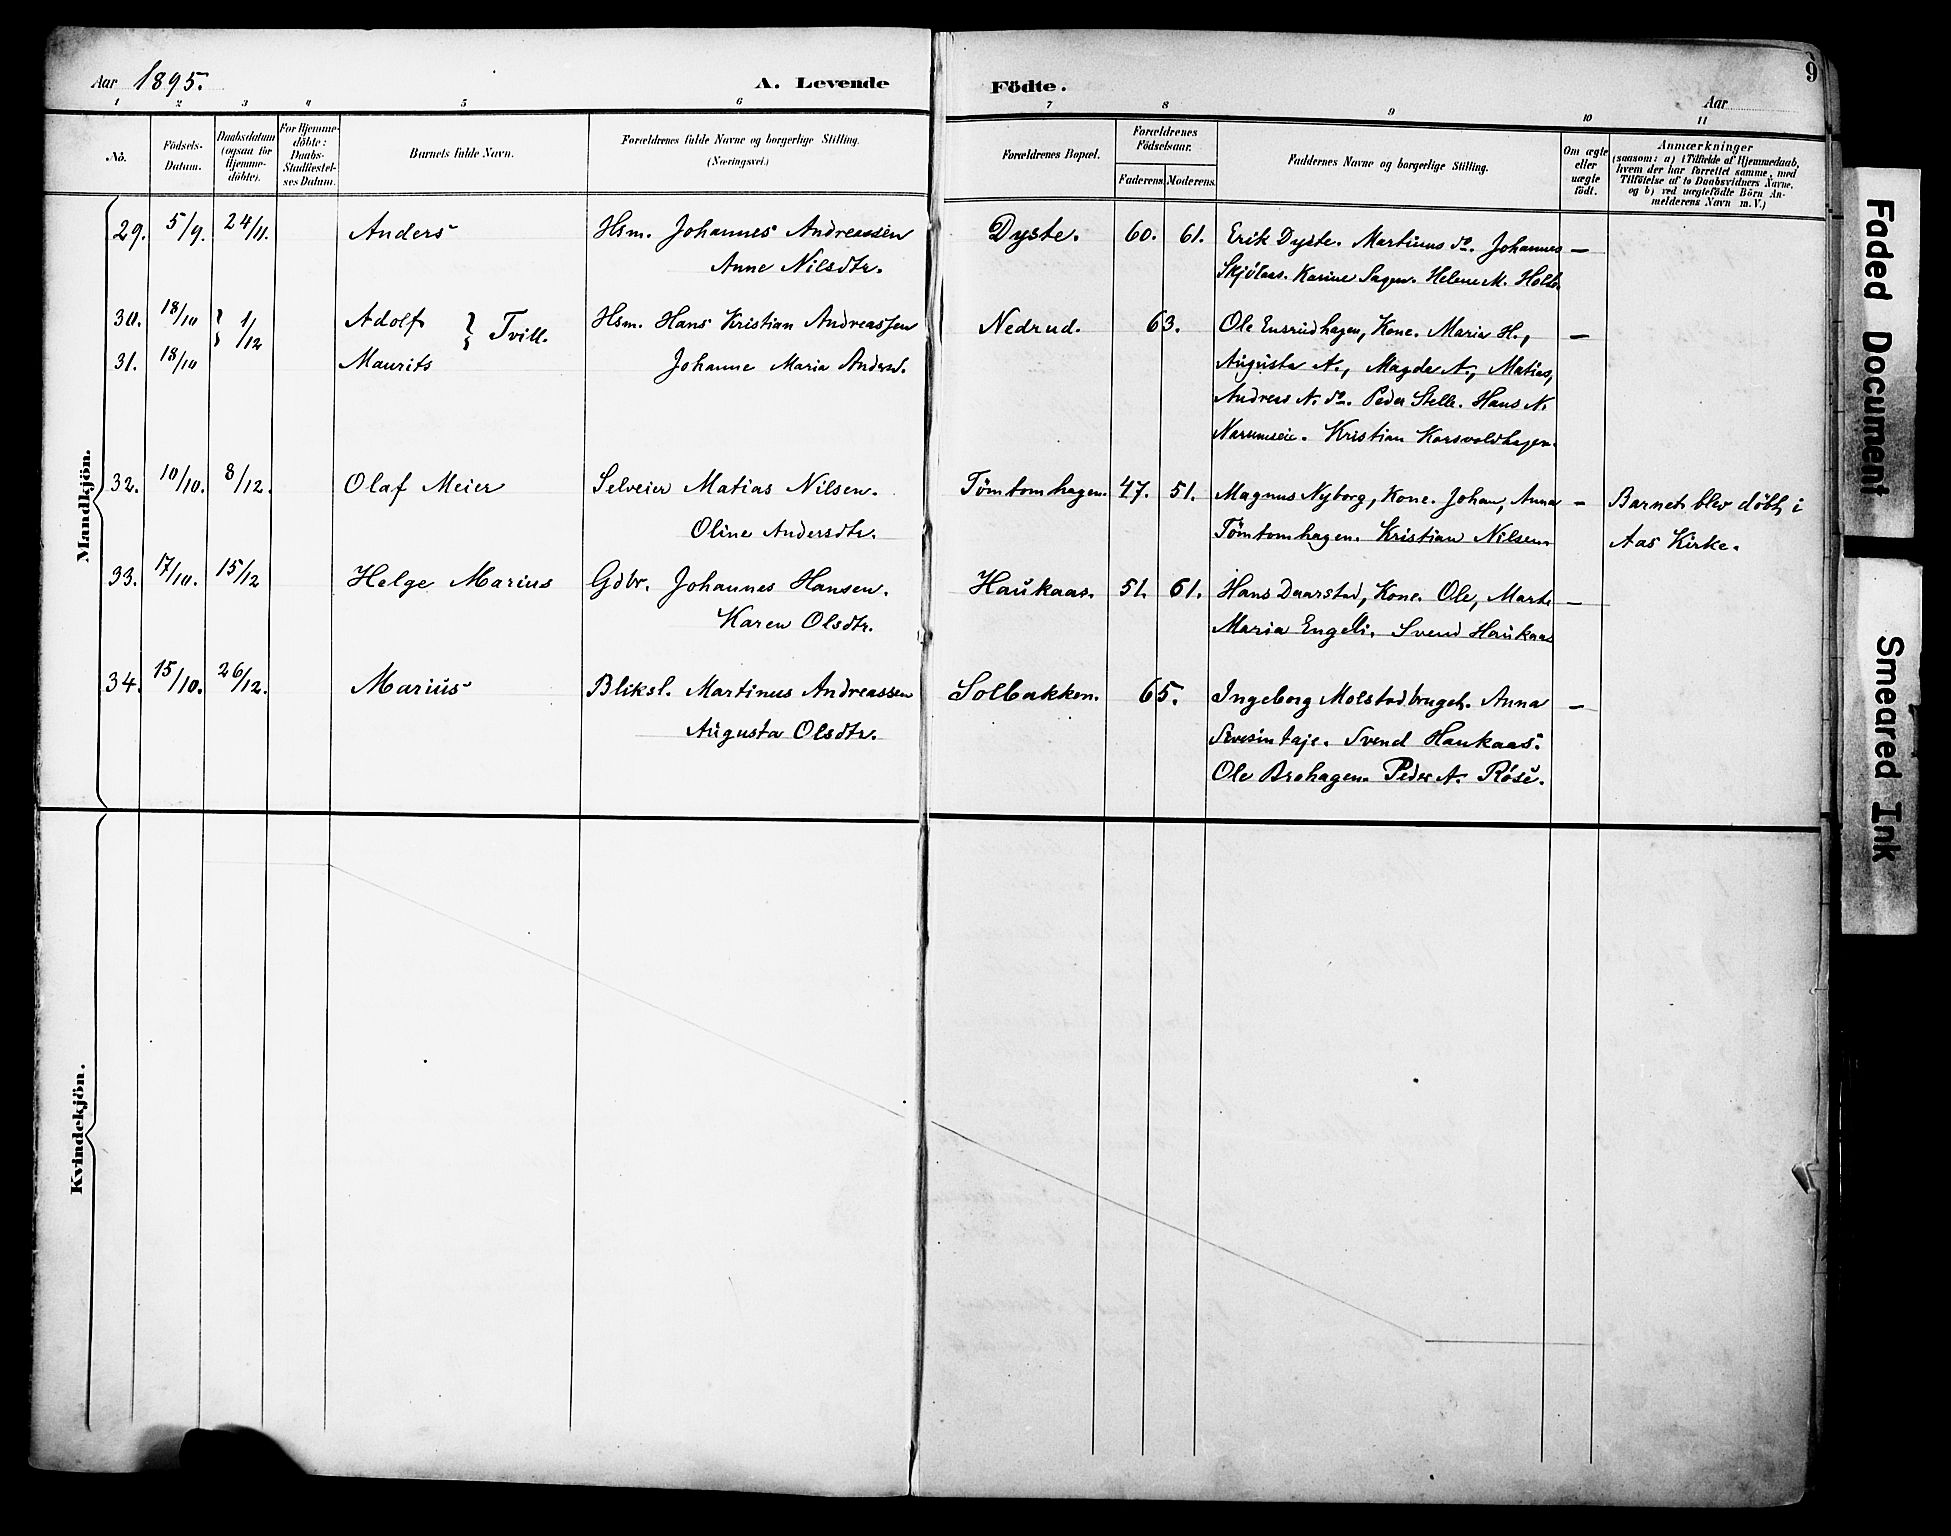 Aar 1895. A. Levende Födte. Aar 9
1 2 3 4 5 6 7 8 9 10 11
No. Födsels-Datum. Daabsdatum (ogsaa for Hjemme-döbte). For Hjemme-döbte: Daabs-Stadfæstel-ses Datum. Barnets fulde Navn. Forældrenes fulde Navne og borgerlige Stilling. (Næringsvei.) Forældrenes Bopæl. Forældrenes Födselsaar. Faderens. Moderens. Faddernes Navne og borgerlige Stilling. Om ægte eller uægte födt. Anmærkninger (saasom: a) i Tilfælde af Hjemmedaab, hvem der har forrettet samme, med Tilföielse af to Daabsvidners Navne, og b) ved uægtefödte Börn An-melderens Navn m. V.)
Mandkjön.
29. 5/9. 24/11. Anders Hsm. Johannes Andreassen Dyste. 60. 61. Erik Dyste. Martinus do. Johannes —
Anne Nilsdtr. Skjölaas. Karine Sagen. Helene M. Holte.
30. 18/10 } 1/12 Adolf } Tvill. Hsm. Hans Kristian Andreassen Nedrud. 63. Ole Ensrudhagen, Kone. Maria H., —
31. 18/10 Maurits Johanne Maria Andersd. Augusta N., Magda N., Matias,
Andreas N. do. Peder Stelle. Hans N.
Narumseie. Kristian Korsvoldhagen.
32. 10/10. 8/12. Olaf Meier Selveier Matias Nilsen. Tömtomhagen. 47. 51. Magnus Nyborg, Kone. Johan, Anna — Barnet blev döbt i
Oline Andersdtr. Tömtomhagen. Kristian Nilsen. Aas Kirke.
33. 17/10. 15/12 Helge Marius Gdbr. Johannes Hansen. Haukaas. 51. 61. Hans Daarstad, Kone. Ole, Marte —
Karen Olsdtr. Maria Engelli. Svend Haukaas
34. 15/10. 26/12. Marius Bliksl. Martinus Andreassen Solbakken. 65. Ingeborg Molstadbruget. Anna —
Augusta Olsdtr. Svend Haukaas.
Ole Brohagen. Peder A.
Kvindekjön.
Faded Document
Smeared Ink